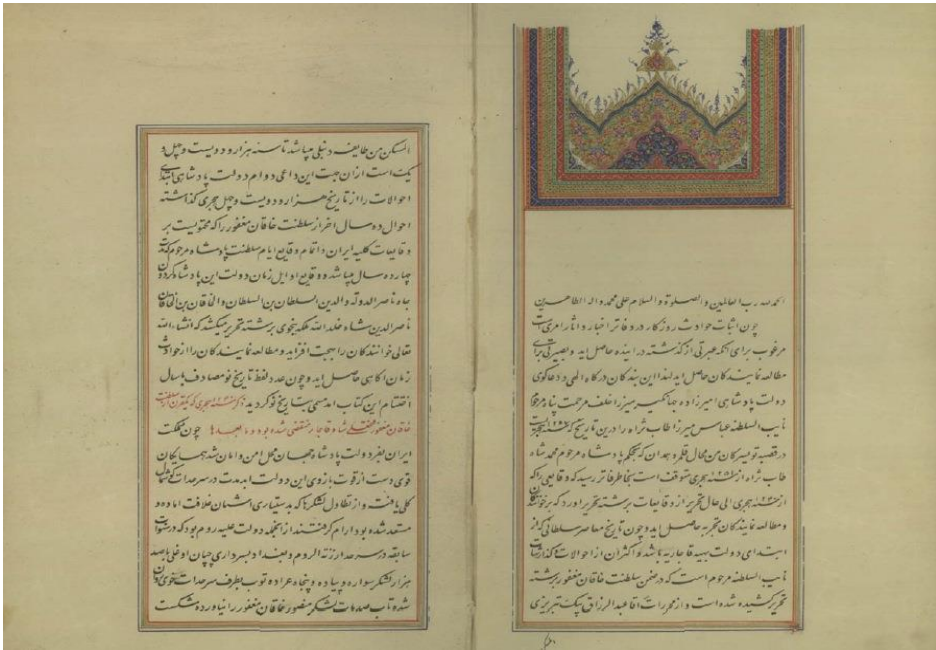 الحمد لله رب العالمین و الصلوة و السلام علی محمد و اله الطاهرین
چون اثبات حوادث روزکار در دفاتر اخبار و اثار امریست
مرغوب برای انکه عبرتی از کذشته در اینده حاصل اید و بصیرتی برای
مطالعه نمایندکان حاصل اید لهذا این بندکان درکاه الهی و دعاکوی
دولت پادشاهی امیرزاده جهانکیر میرزا خلف مرحمت پناه مرحوم
نایب السلطنه عباس میرزا طاب ثراه را درین تاریخ که هجریست
در قصبه تویسرکان من محال قلمرو همدان که بحکم پادشاه مرحوم محمد شاه
طاب ثراه از هجری متوقف است بخاطر فاتر رسید که وقایعی را که
از هجری الی حال تحریر از وقایعات برشته تحریر اورد که برخوانندکان
و مطالعه نمایندکان تجربه حاصل اید و چون تاریخ معاصر سلطانی که از
ابتدای دولت بهیه قاجاریه میباشد و اکثر از احوالات کذارشات
نایب السلطنه مرحوم است که در ضمن سلطنت خاقان مغفور برشته
تحریر کشیده شده است و از محررات اقا عبدالرزاق بیک تبریزی
المسکن من طایفه دنبلی میباشد تا سنه هزار و دویست و چهل و
یک است ازان جهت این داعی دوام دولت پادشاهی ابتدای
احوالات را از تاریخ هزار و دویست و چهل هجری کذاشته
احوال ده سال اخر از سلطنت خاقان مغفور را که محتویست بر
وقایعات کلیه ایران و اتمام وقایع ایام سلطنت پادشاه مرحوم که مدت
چهارده سال میباشد و وقایع اوایل زمان دولت این پادشاه کردون
جاه ناصر الدوله و الدین السلطان بن السلطان و الخاقان بن الخاقان
ناصرالدین شاه خلد الله ملکه بنحوی برشته تحریر میکشد که انشاء الله
تعالی خوانندکان را بهجت افزاید و مطالعه نمایندکان را از حوادث
زمان اکاهی حاصل اید و چون عدد لفظ تاریخ نو مصادف با سال
اختتام این کتاب امد مسمی بتاریخ نو کردید
خاقان مغفور فتحعلی شاه قاجار منقضی شده بود و ما بعدها چون مملکت
ایران بفر دولت پادشاه جهان محل امن و امان شد همسایکان
قوی دست از قوت بازوی این دولت ابد مدت در سرحدات کوشمال
کلی یافتند و از تطاول لشکرها که بدستیاری امنای خلافت اماده و
مستعد شده بود ارام کرفتند از انجمله دولت علیه روم بود که در سنوات
سابقه در سرحد ارزنة الروم و بغداد بسرداری چپان اوغلی با صد
هزار لشکر سواره و پیاده و پنجاه عراده توپ بطرف سرحدات
شده تاب صدمات لشکر منصور خاقان مغفور را نیاورده شکست